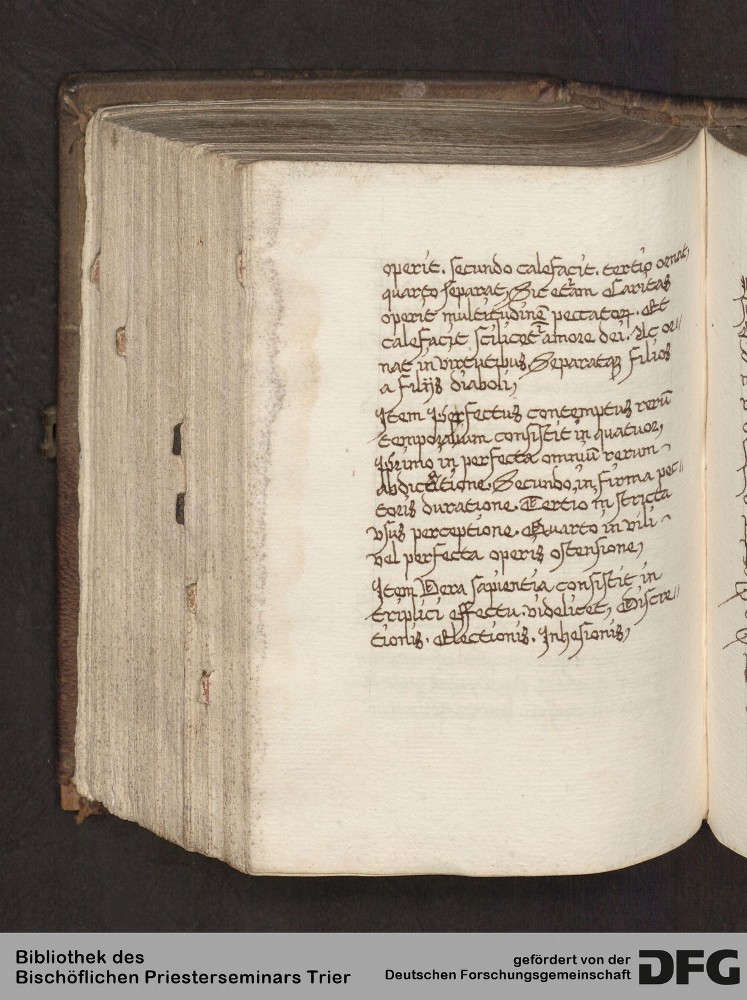 operit. secundo calefacit. tertio ornat,
quarto separat, Sic etiam Caritas
operit multitudinē peccatoꝝ. Et
calefacit scilicet amore dei. Ac or//
nat in virtutibus, Separatqꝫ filios
a filijs diaboli,
Item Perfectus contemptus rerū
temporalium consistit in quatuor,
Primo in perfecta omniū rerum
abdicatione. Secundo, in firma pec//
toris duratione. Tertio in stricta
vsus perceptione. Quarto in vili
vel perfecta operis ostensione,
Item Vera sapientia consistit in
triplici effectu. videlicet, Discre//
tionis. Electionis. Inhesionis,
Bibliothek des
Bischöflichen Priesterseminars Trier
gefördert von der
Deutschen Forschungsgemeinschaft
DFG